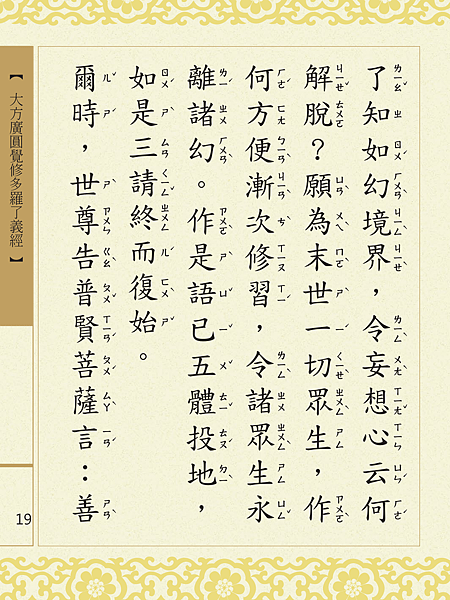 了知如幻境界，令妄想心云何
解脫？願為末世一切眾生，作
何方便漸次修習，令諸眾生永
離諸幻。作是語已五體投地，
如是三請終而復始。
爾時，世尊告普賢菩薩言：善
【大方廣圓覺修多羅了義經】
19